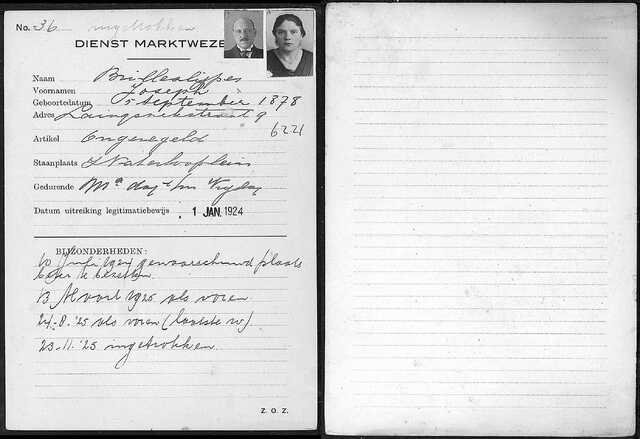 No. 36 ingetrokken
DIENST MARKTWEZE
Naam Brilleslijpes
Voornamen Joseph
Geboortedatum 5 September 1878
Adres Laingsnekstraat 9
6221
Artikel Ongeregeld
Staanplaats Waterlooplein
Gedurende Ma dag t/m Vrydag
Datum uitreiking legitimatiebewijs 1 JAN. 1924
BIJZONDERHEDEN:
10 gewaarschuwd plaats
beter te bezetten.
13 Maart 1925 als voren
24-8-'25 als voren (laatste w)
23-11-'25 ingetrokken.
Z. O. Z.